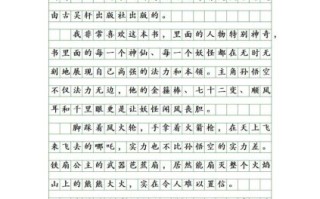 由古吴轩出版社出版的。
我非常喜欢这本书，里面的人物特别神奇，
书里面的每一个神仙、每一个妖怪都在无时无
刻地展现自己高强的法力和本领。主角孙悟空
不仅法力无边，他的金箍棒、七十二变、顺风
耳和千里眼更是让妖怪闻风丧胆。
脚踩着风火轮，手拿着火箭枪，在天上飞
来飞去的哪吒，实力也不比孙悟空的实力差。
铁扇公主的武器芭蕉扇，居然能扇灭整个火焰
山上的熊熊大火，实在令人难以置信。